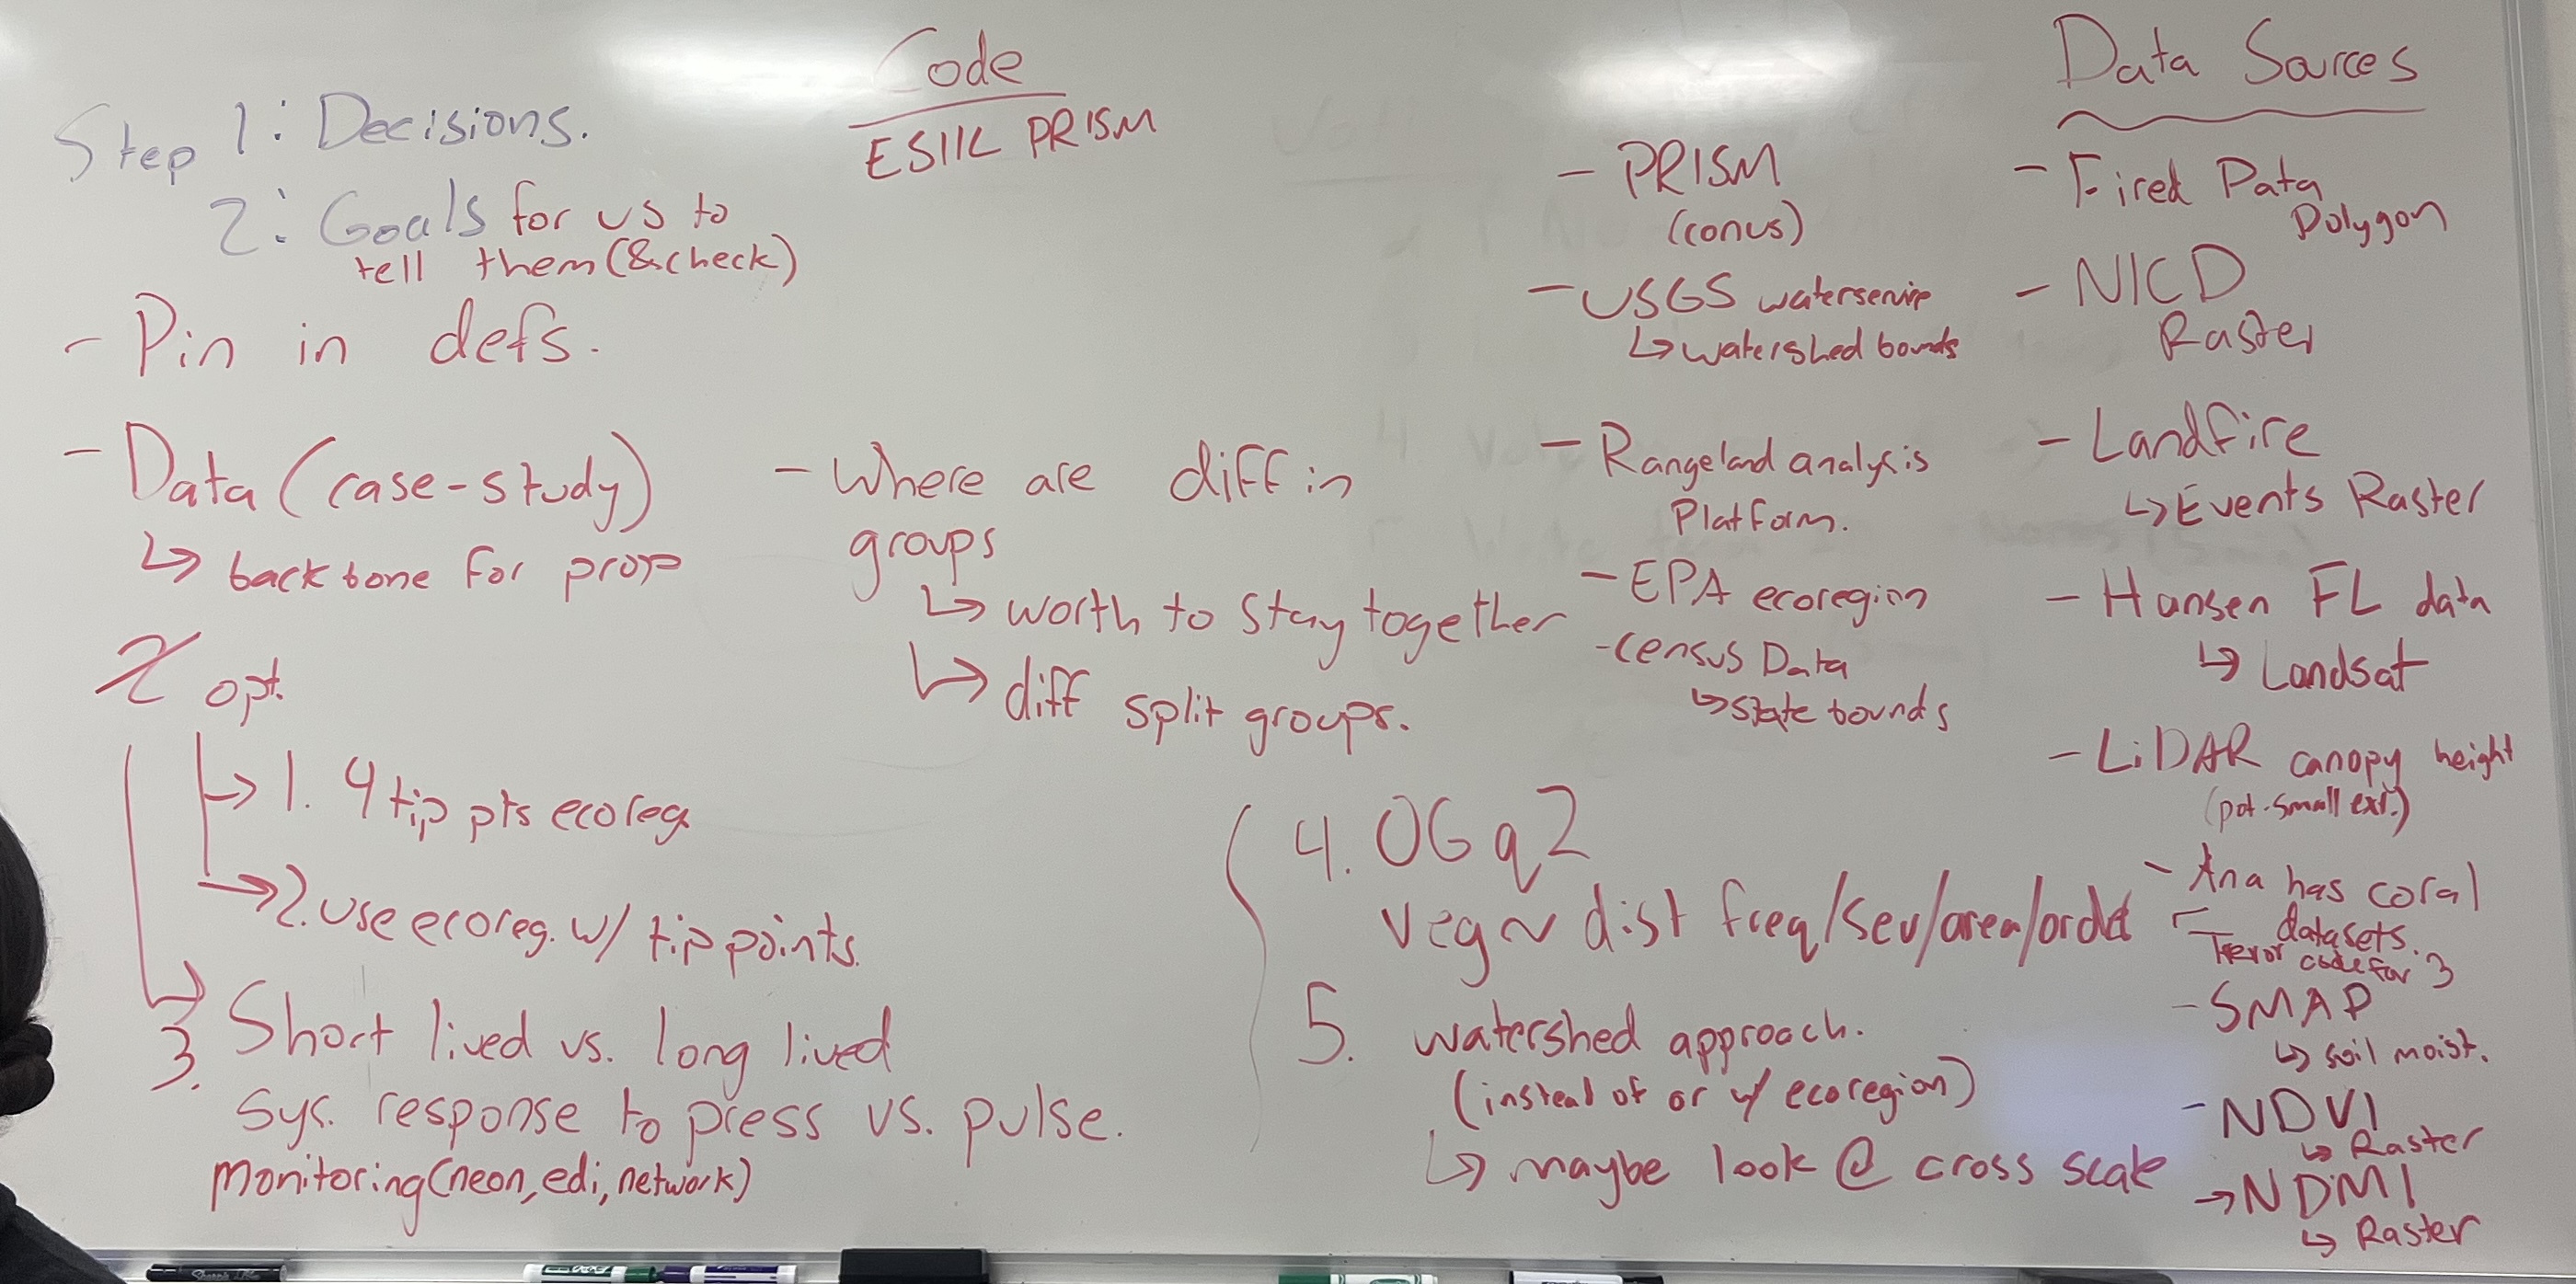 Step 1: Decisions.
2: Goals for us to
tell them (& check)
- Pin in defs.
- Data (case-study)
↳ backbone for prop
2 opt.
→ 1. 4 tip pts ecoreg.
→ 2. use ecoreg. w/ tip points.
3. Short lived vs. long lived
sys. response to press vs. pulse.
monitoring (neon, edi, network)
Code
ESIIL PRISM
- Where are diff in
groups
↳ worth to stay together
↳ diff split groups.
4. OG q2
veg ~ dist freq/sev/area/order
5. watershed approach.
(instead of or w/ ecoregion)
↳ maybe look @ cross scale
- PRISM
(conus)
- USGS waterservice
↳ watershed bounds
- Rangeland analysis
Platform.
- EPA ecoregion
- Census Data
↳ state bounds
Data Sources
- Fired Data
Polygon
- NICD
Raster
- Landfire
↳ Events Raster
- Hansen FL data
↳ Landsat
- LiDAR canopy height
(pot. small ext.)
- Ana has coral
datasets.
- Trevor code for 3
- SMAP
↳ soil moist.
- NDVI
↳ Raster
→ NDMI
↳ Raster